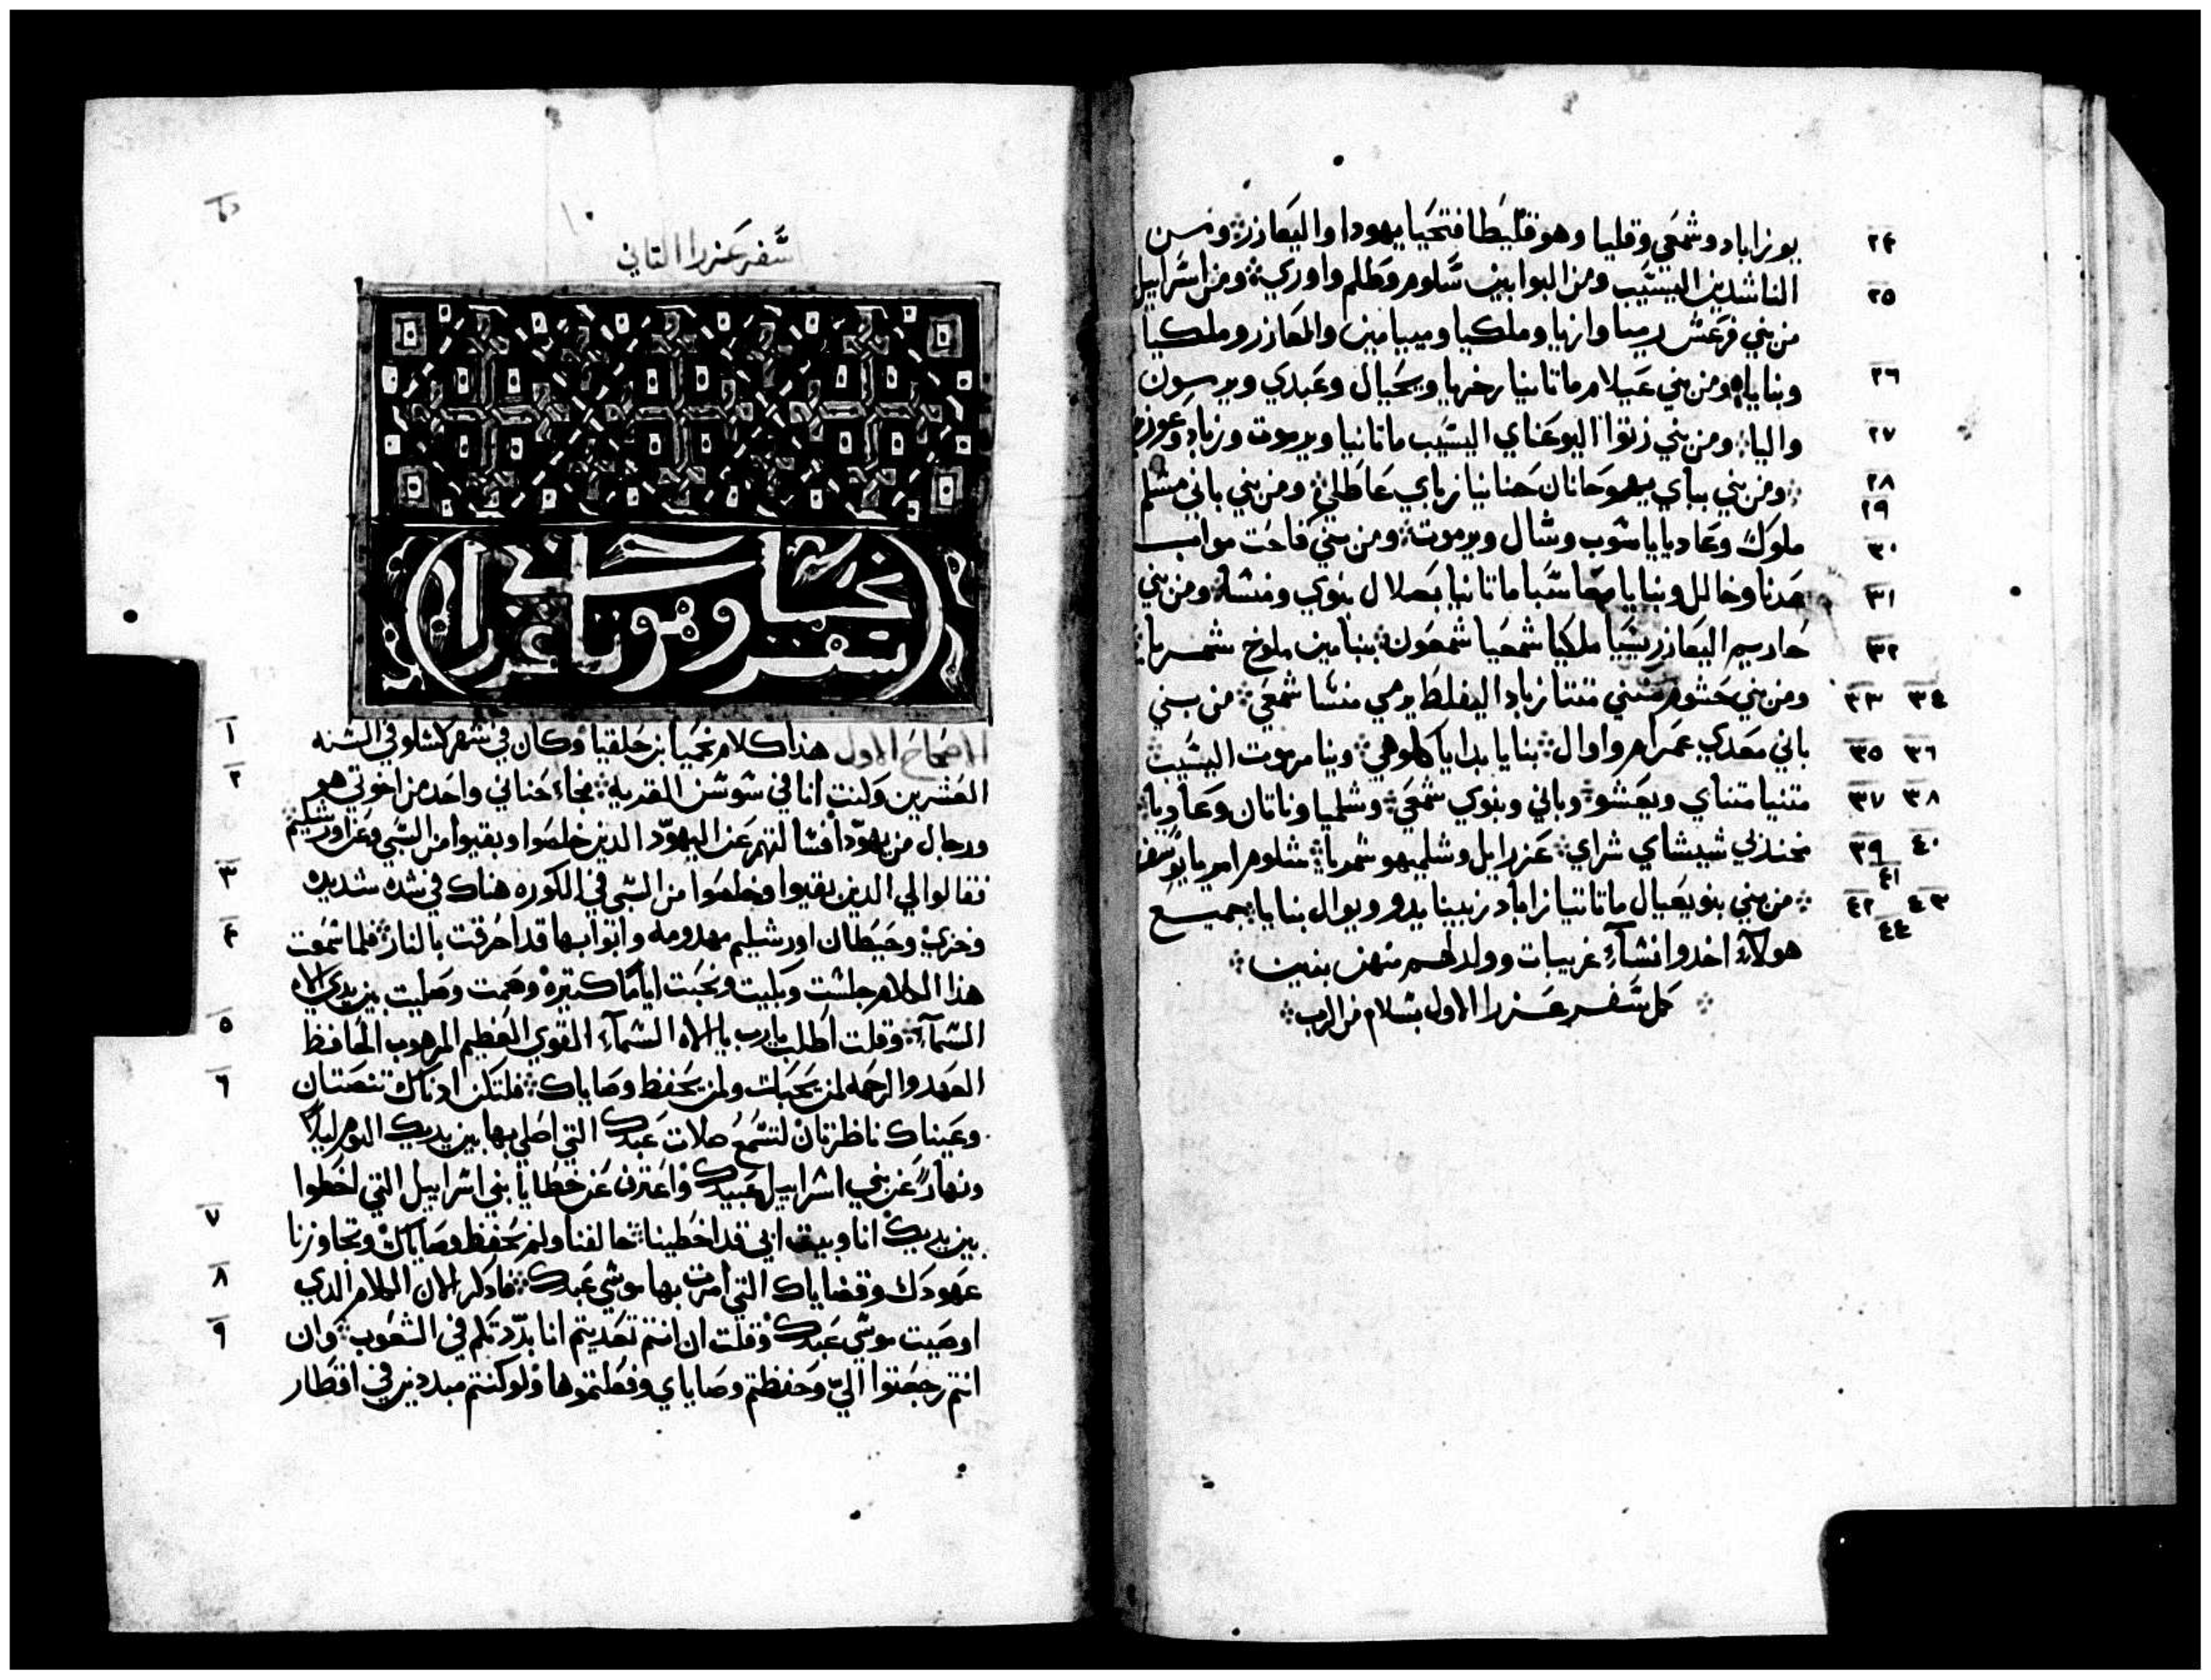 ٢٤ يوزاباد وشمعي وقليا وهو قليطا فتحيا يهودا واليعازر ومن
٢٥ الناشدين اليشيب ومن البوابين سلوم وطلم واوري ومن اسراييل
من بني فرعش رميا وازيا وملكيا وميامين والعازر وملكيا
٢٦ وبناياه ومن بني عيلام ماتانيا زخريا ويحيال وعبدي ويرموت
٢٧ واليا ومن بني زتوا اليوعناي اليشيب ماتانيا ويرموت وزباد وعوزيز
٢٨ ومن بني بباي يهوحانان حنانيا زباي عاطلي ومن بني باني مشلم
٢٩
٣٠ ملوك وعادايا ياشوب وشال ويرموت ومن بني فاحت مواب
٣١ عدنا وخالل وبنايا معاسيا ماتانيا بصلال بنوي ومنشا ومن بني
٣٢ حاريم اليعازر يشيا ملكيا شمعيا شمعون بنيامين ملوخ شمريا
٣٣ ٣٤ ومن بني حشوم متني متتا زباد اليفلط يرمي منشا شمعي من بني
٣٥ ٣٦ باني معدي عمرام واوال بنايا بدايا كلوهي وينا مرموت اليشيب
٣٧ ٣٨ متنيا متناي ويعشو وباني وبنوي شمعي وشلميا وناتان وعاديا
٣٩ ٤٠ ٤١ مخندبي شيشاي شراي عزراييل وشلميهو شمريا شلوم امريا يوسف
٤٢ ٤٣ من بني بنو يعيال ماتاتيا زاباد زبينا يدو ويوال بنايا جميع
٤٤ هولاء اخدوا نشاء غريبات وولد لهم منهن بنين
كمل سفر عزرا الاول بسلام من الرب
سفر عزرا الثاني
نحميا
سفر وهو عزرا
١ الاصحاح الاول هذا كلام نحميا بن حلقيا وكان في شهر كشلو في السنه
٢ العشرين وكنت انا في شوشن القريه فجاء حناني واحد من اخوتي هو
ورجال من يهودا فسالتهم عن اليهود الذين خلصوا وبقيوا من السبي وعن اورشليم
٣ فقالوا لي الذين بقيوا وخلصوا من السبي في الكوره هناك في شده شديده
٤ وخزي وحيطان اورشليم مهدومه وابوابها قد احرقت بالنار فلما سمعت
هذا الكلام جلست وبكيت ونحبت اياما كتيره وصمت وصليت بين يدي الاه
٥ السماء وقلت اطلب يارب يا الاه السماء القوي العظيم المرهوب الحافظ
٦ العهد والرحمه لمن يحبك ولمن يحفظ وصاياك فلتكن ادناك تنصتان
وعيناك ناظرتان لتسمع صلات عبدك التي اصلي بها بين يديك اليوم ليلا
ونهارا عن بني اسراييل عبيدك واعترف عن خطايا بني اسراييل التي اخطوا
٧ بين يديك انا وبيت ابي قد اخطينا خالفنا ولم نحفظ وصاياك وتجاوزنا
٨ عهودك وقضاياك التي امرت بها موسي عبدك فادكر الان الكلام الدي
٩ اوصيت موسي عبدك وقلت ان انتم تعديتم انا بددتكم في الشعوب وان
انتم رجعتوا الي وحفظتم وصاياي وفعلتموها ولو كنتم مبددين في اقطار